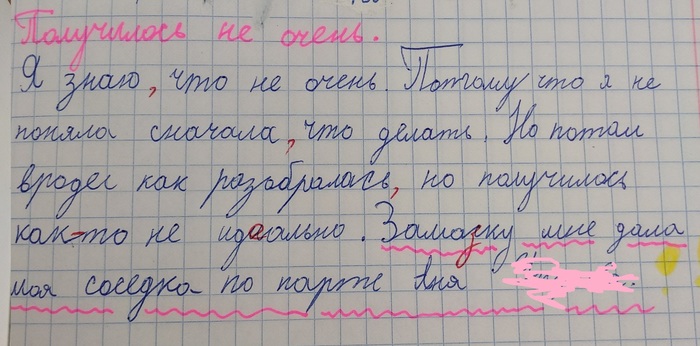 Получилось не очень.
Я знаю, что не очень. Потому что я не
поняла сначала, что делать. Но потом
вроде как разобралась, но получилось
как-то не идеально. Замазку мне дала
моя соседка по парте Аня